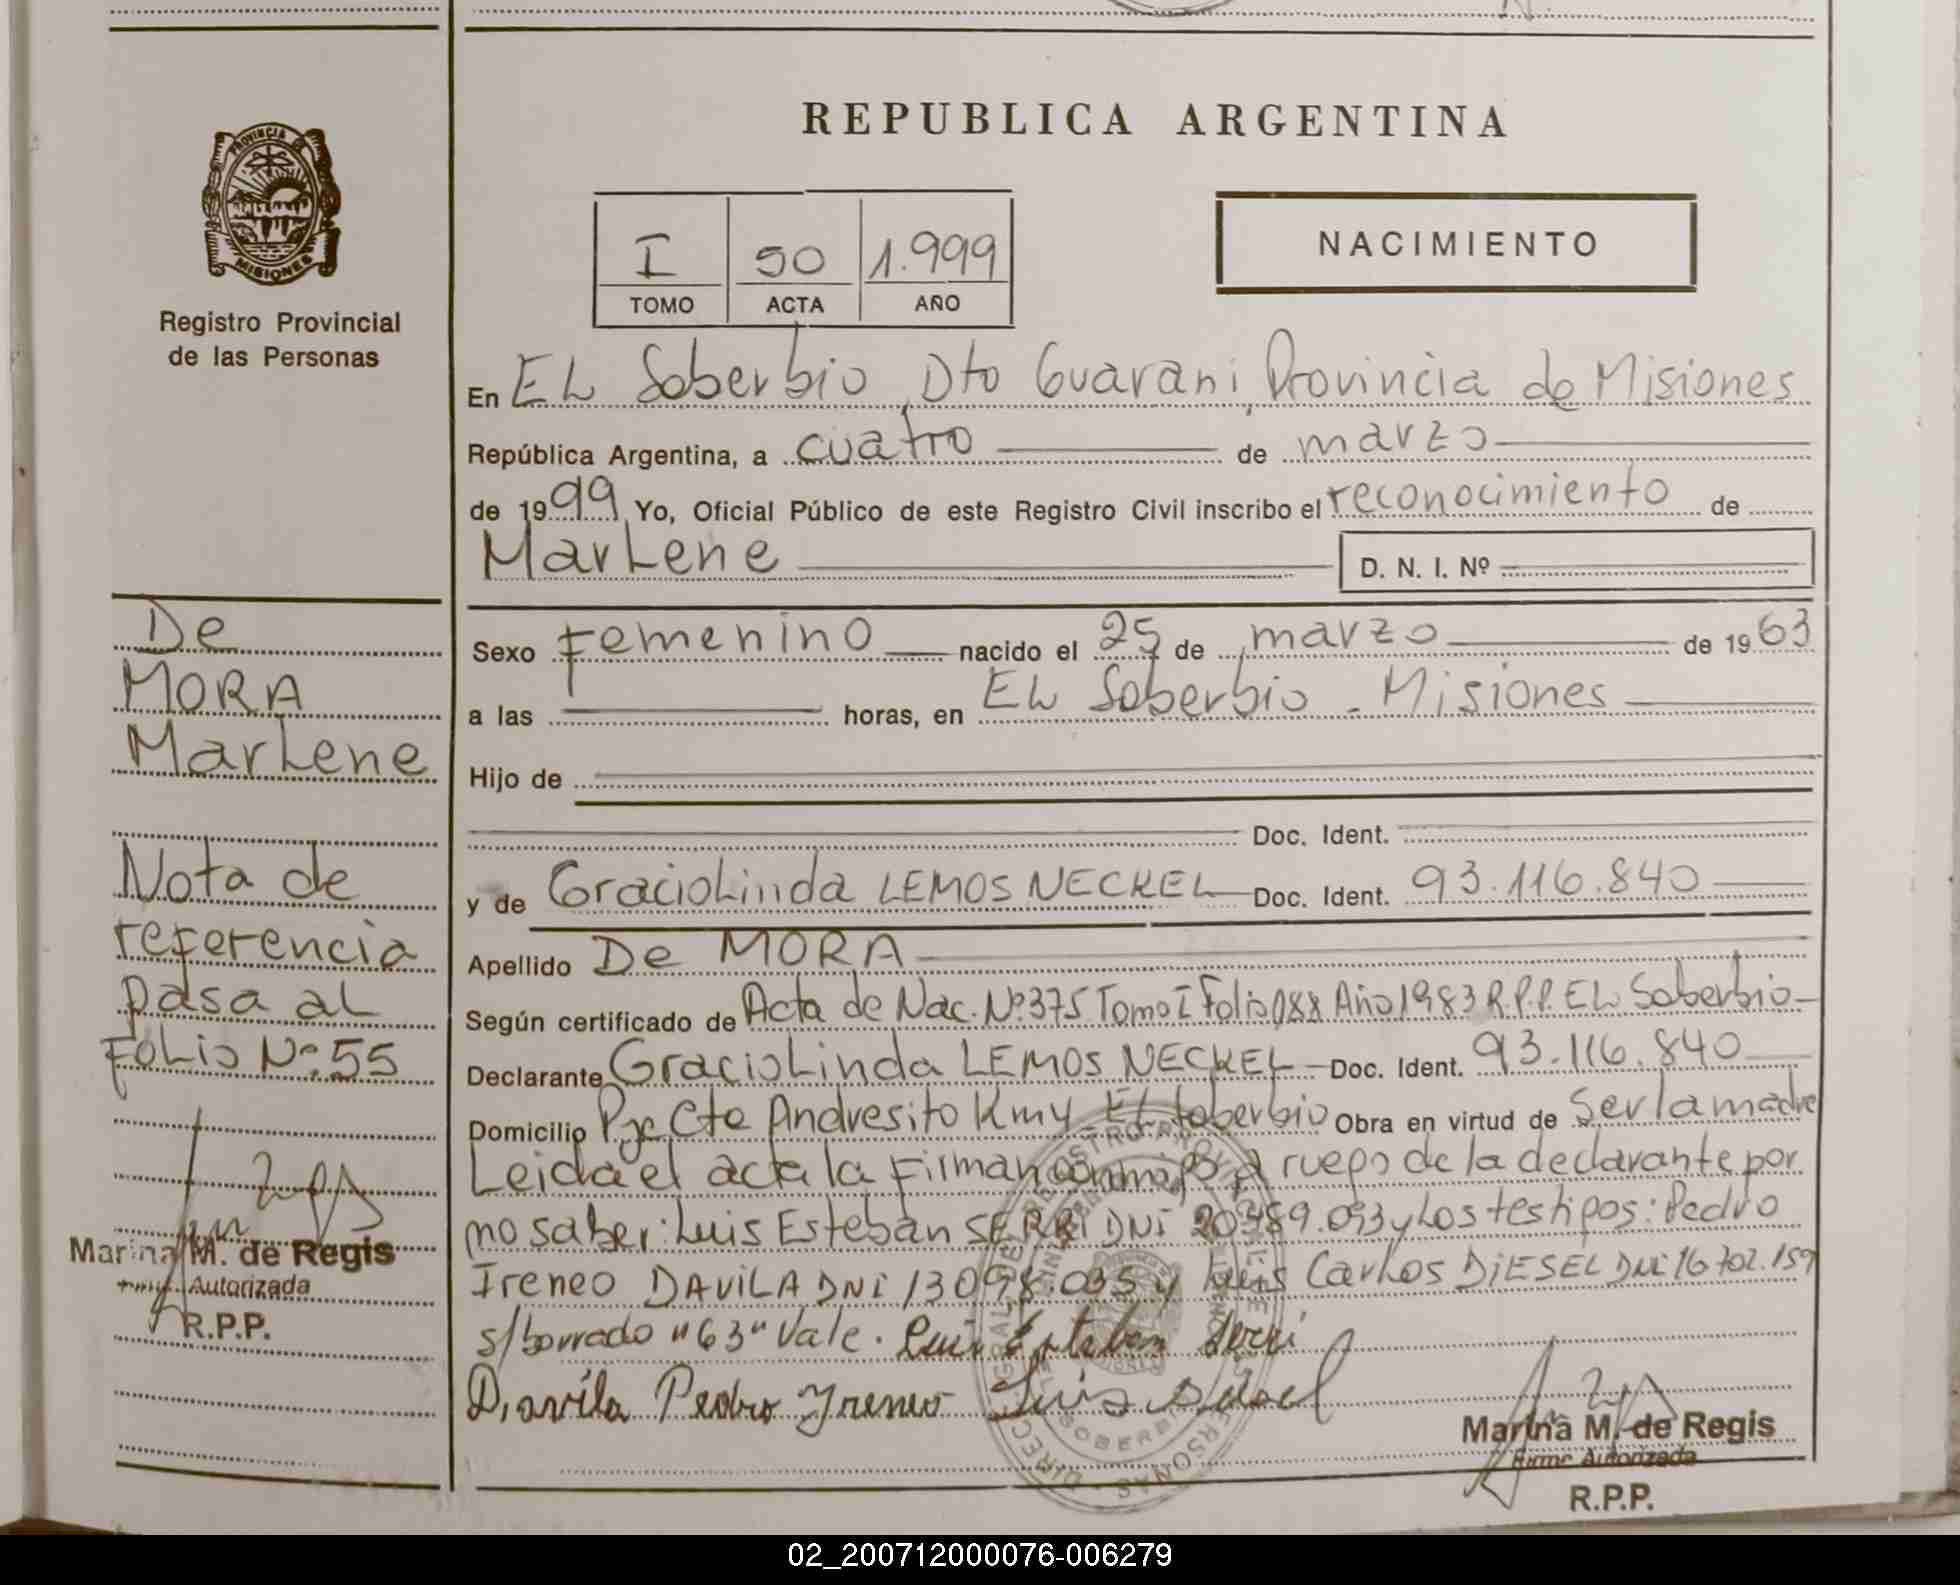 REPUBLICA ARGENTINA
PROVINCIA DE
MISIONES
Registro Provincial
de las Personas
I 50 1.999
TOMO ACTA AÑO
NACIMIENTO
En EL Soberbio, Dto Guarani, Provincia de Misiones
República Argentina, a cuatro de marzo
de 1999 Yo, Oficial Público de este Registro Civil inscribo el reconocimiento de
MarLene D. N. I. Nº
De
MORA
MarLene
Nota de
referencia
pasa al
Folio Nº:55
Marina M. de Regis
Autorizada
R.P.P.
Sexo Femenino nacido el 25 de marzo de 1963
a las horas, en EL Soberbio - Misiones
Hijo de
Doc. Ident.
y de GracioLinda LEMOS NECKEL Doc. Ident. 93.116.840
Apellido De MORA
Según certificado de Acta de Nac. Nº375 Tomo I Folio 088 Año 1983 R.P.P. EL Soberbio
Declarante GracioLinda LEMOS NECKEL Doc. Ident. 93.116.840
Domicilio Pje Cte Andresito Km4 EL Soberbio Obra en virtud de Ser la madre
Leida el acta la Firman conmigo a ruego de la declarante por
no saber: Luis Esteban SERRI DNI y Los testigos: Pedro
Ireneo DAVILA DNI 13098.035 y Luis Carlos DIESEL DNI 16702.159
s/borrado "63" Vale. Luis Esteban Serri
Davila Pedro Yreneo Luis Diesel
Marina M. de Regis
Firma Autorizada
R.P.P.
02_200712000076-006279